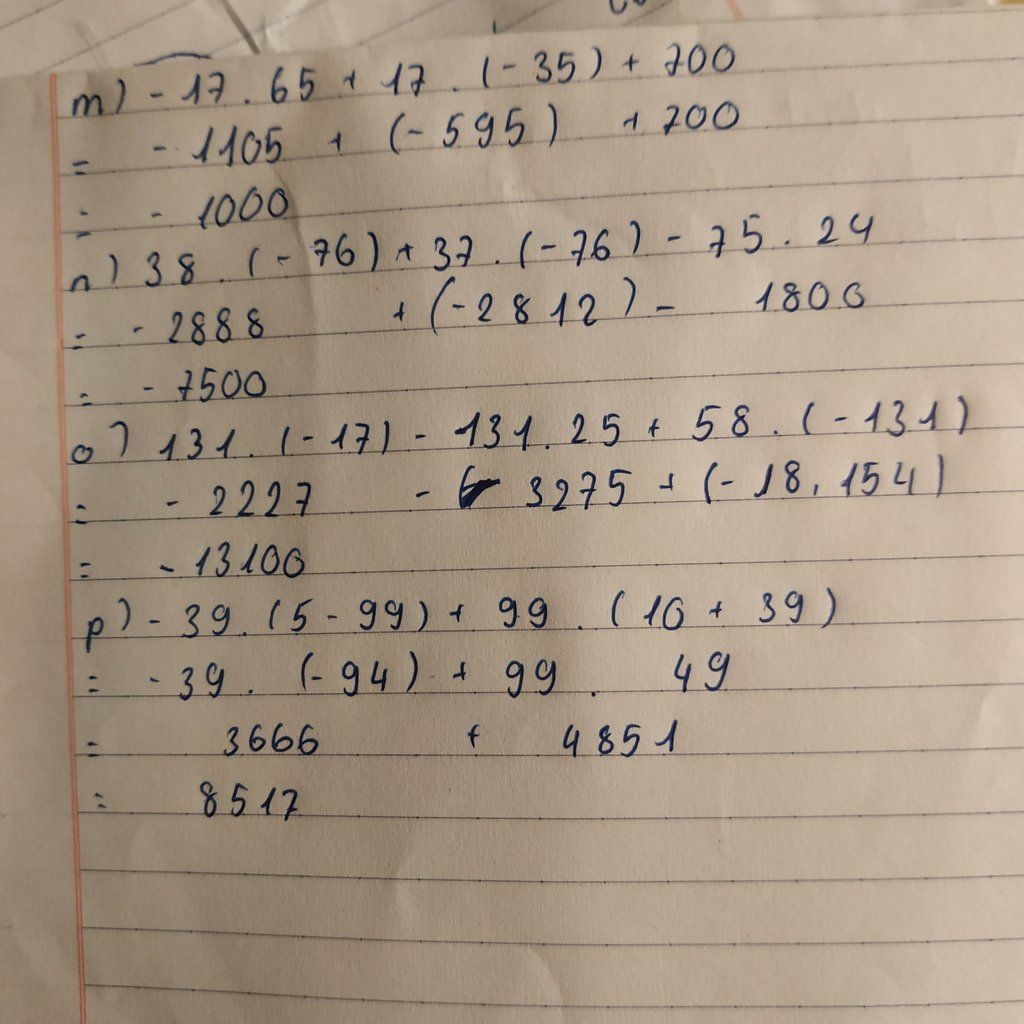 m) - 17 . 65 + 17 . (- 35) + 700
= - 1105 + (- 595) + 700
= - 1000
n) 38 . (- 76) + 37 . (- 76) - 75 . 24
= - 2888 + (- 2812) - 1800
= - 7500
o) 131 . (- 17) - 131 . 25 + 58 . (- 131)
= - 2227 - 3275 + (- 18,154)
= - 13100
p) - 39 . (5 - 99) + 99 . (10 + 39)
= - 39 . (- 94) + 99 . 49
= 3666 + 4851
= 8517